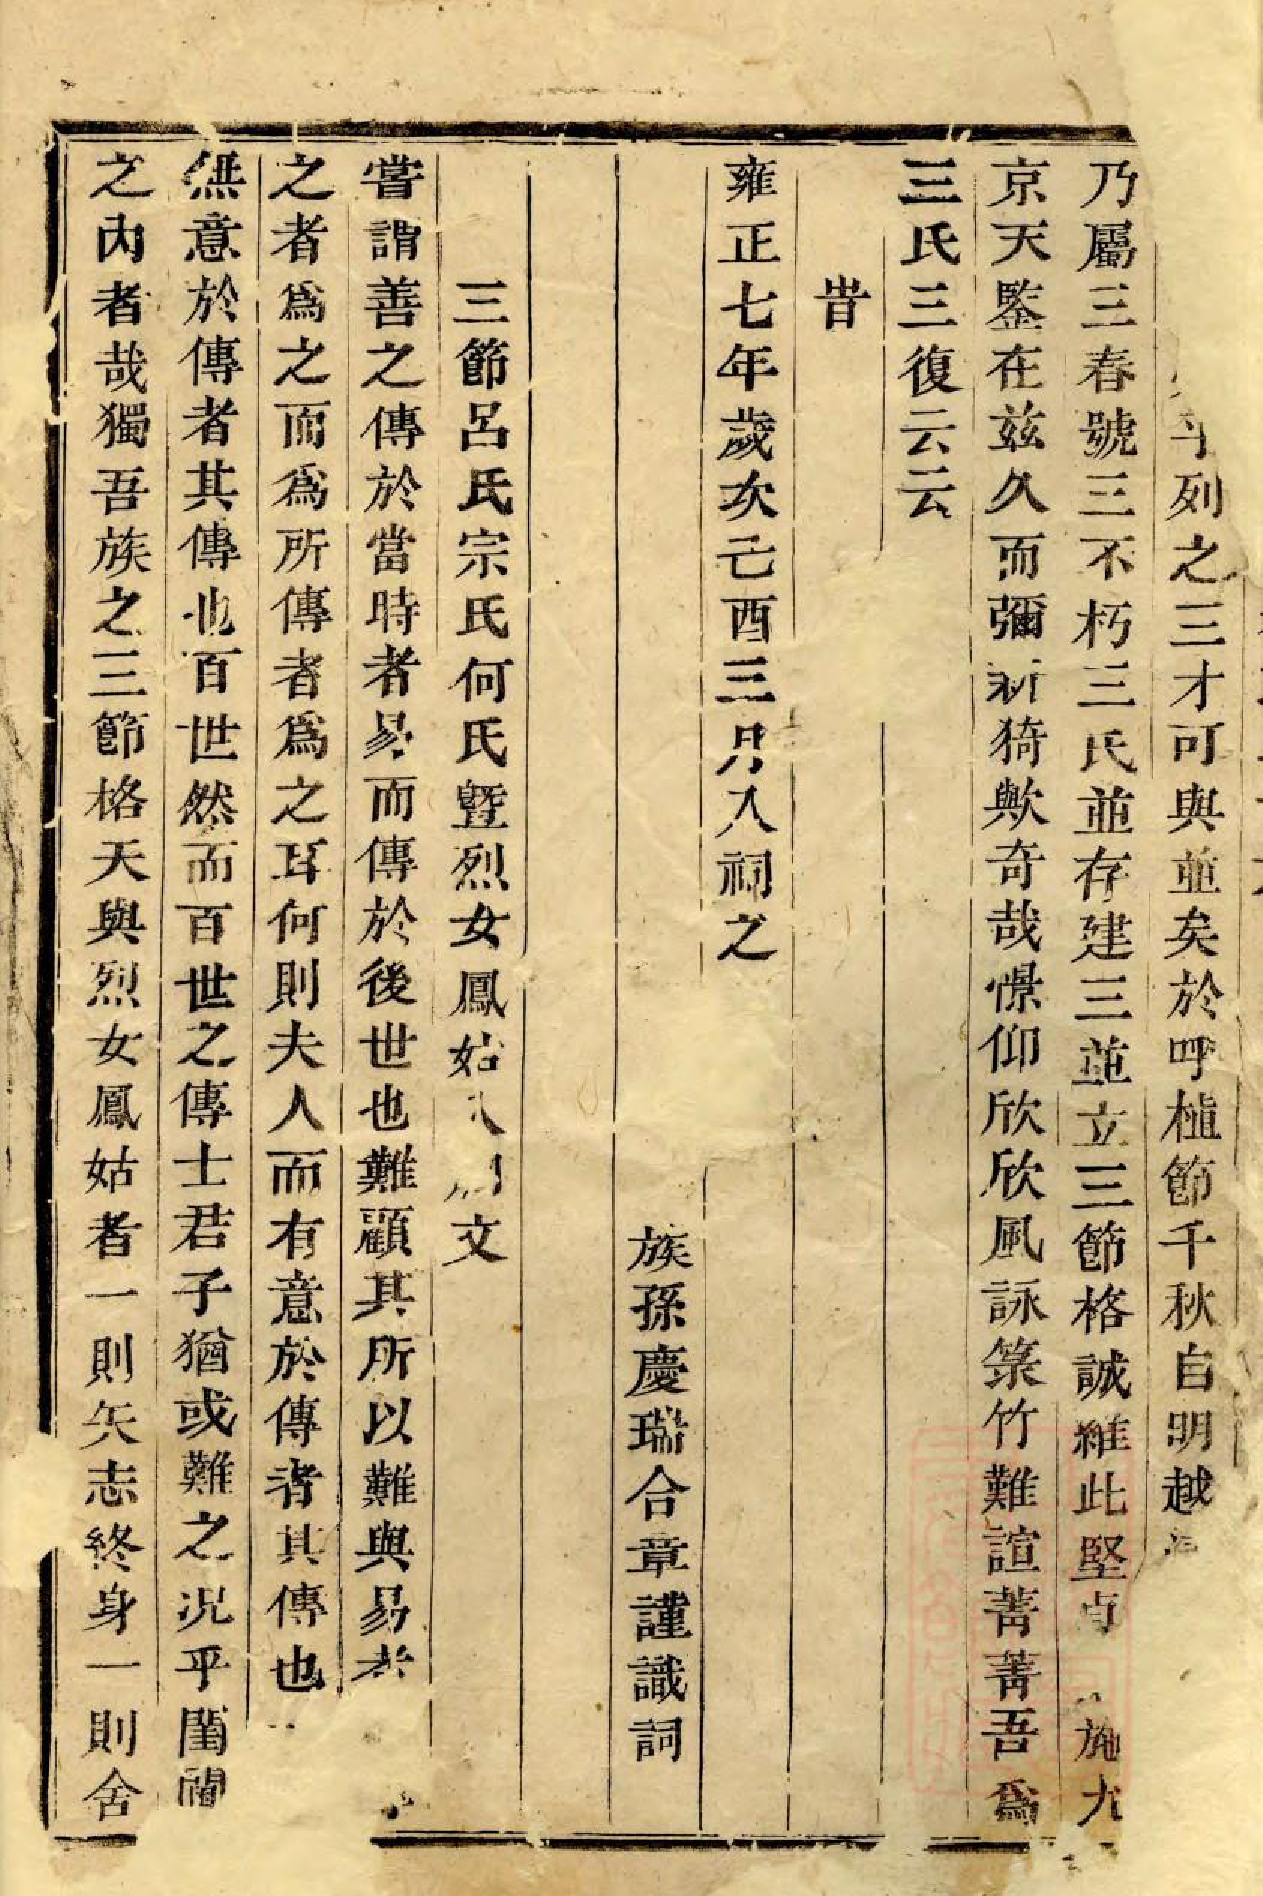 列之三才可與並矣於呼植節千秋自明越
乃屬三春號三不朽三氏並存建三並立三節格誠維此堅貞施九
京天鑒在茲久而彌新猗歟奇哉憬仰欣欣風詠箓竹難諠菁菁吾爲
三氏三復云云
旹
雍正七年歲次己酉三月入祠之
族孫慶瑞合章謹識詞
三節呂氏宗氏何氏暨烈女鳳姑入祠文
嘗謂善之傳於當時者易而傳於後世也難顧其所以難與易者
之者爲之而爲所傳者爲之耳何則夫人而有意於傳者其傳也
無意於傳者其傳也百世然而百世之傳士君子猶或難之况乎閨閫
之內者哉獨吾族之三節格天與烈女鳳姑者一則矢志終身一則舍